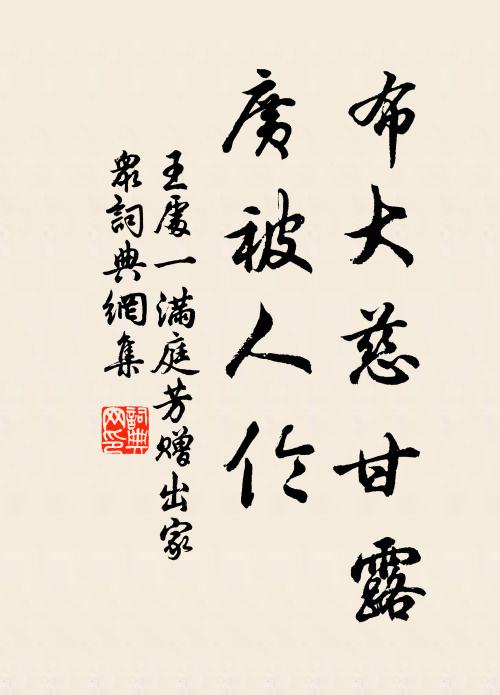 布大慈甘露
廣被人倫
王處一滿庭芳贈出家
眾詞典網集
詞典网印